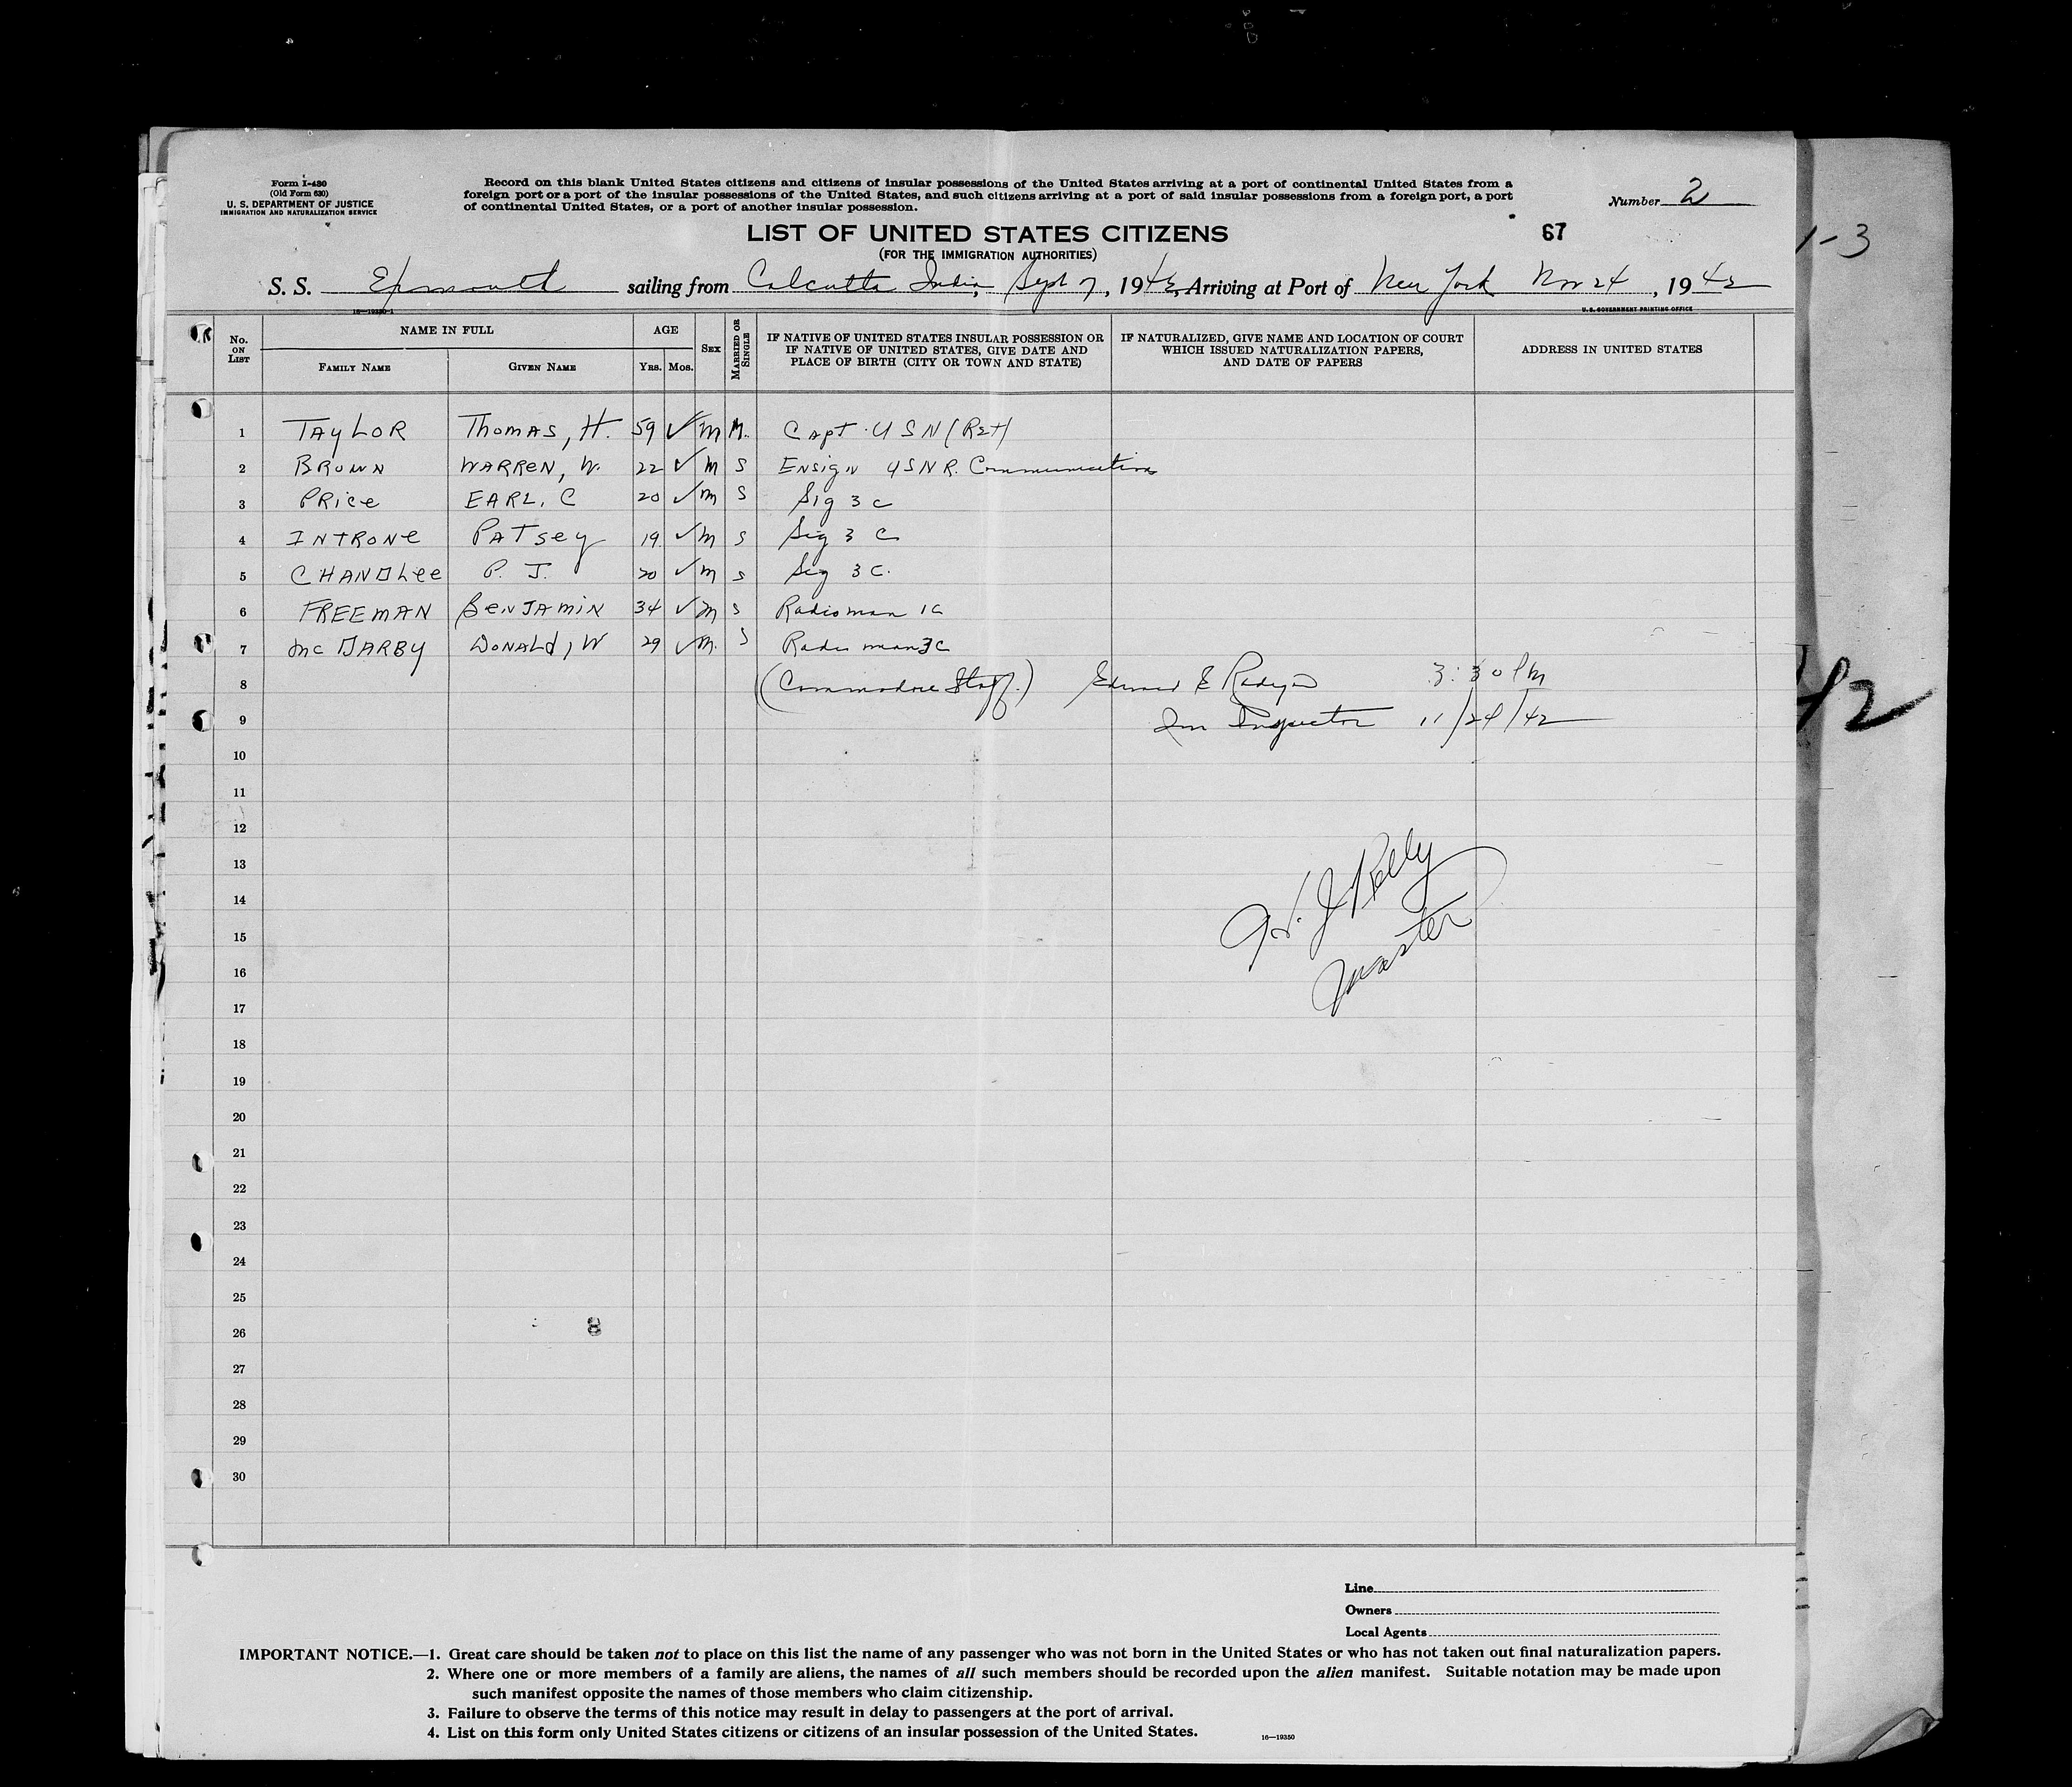 Form I-430
(Old Form 630)
U. S. DEPARTMENT OF JUSTICE
IMMIGRATION AND NATURALIZATION SERVICE
Record on this blank United States citizens and citizens of insular possessions of the United States arriving at a port of continental United States from a
foreign port or a port of the insular possessions of the United States, and such citizens arriving at a port of said insular possessions from a foreign port, a port
of continental United States, or a port of another insular possession.
Number 2
LIST OF UNITED STATES CITIZENS
67
(FOR THE IMMIGRATION AUTHORITIES)
1-3
S. S. Exmouth sailing from Calcutta India, Sept 7, 1942, Arriving at Port of New York Nov 24, 1942
16—19350-1
U. S. GOVERNMENT PRINTING OFFICE
No. ON LIST
NAME IN FULL
FAMILY NAME
GIVEN NAME
AGE
YRS. MOS.
SEX
MARRIED OR SINGLE
IF NATIVE OF UNITED STATES INSULAR POSSESSION OR
IF NATIVE OF UNITED STATES, GIVE DATE AND
PLACE OF BIRTH (CITY OR TOWN AND STATE)
IF NATURALIZED, GIVE NAME AND LOCATION OF COURT
WHICH ISSUED NATURALIZATION PAPERS,
AND DATE OF PAPERS
ADDRESS IN UNITED STATES
1 TAYLOR THOMAS, H. 59 ✓ M M. Capt. USN (Ret)
2 BROWN WARREN, W. 22 ✓ M S ENSIGN USNR. Communications
3 PRICE EARL, C 20 ✓ M S Sig 3 C
4 INTRONE PATSEY 19 ✓ M S Sig 3 C
5 CHANDLEE P. J. 20 ✓ M S Sig 3C.
6 FREEMAN BENJAMIN 34 ✓ M S Radioman 1C
7 Mc DARBY DONALD, W 29 ✓ M. S Radioman 3C
8 (Commodore Staff.) Edward E 3:30 PM
9 Imm Inspector 11/24/42
42
10
11
12
13
14
15
16
17
J Kelly
Master
18
19
20
21
22
23
24
25
26
8
27
28
29
30
Line
Owners
Local Agents
IMPORTANT NOTICE.—1. Great care should be taken not to place on this list the name of any passenger who was not born in the United States or who has not taken out final naturalization papers.
2. Where one or more members of a family are aliens, the names of all such members should be recorded upon the alien manifest. Suitable notation may be made upon
such manifest opposite the names of those members who claim citizenship.
3. Failure to observe the terms of this notice may result in delay to passengers at the port of arrival.
4. List on this form only United States citizens or citizens of an insular possession of the United States.
16—19350